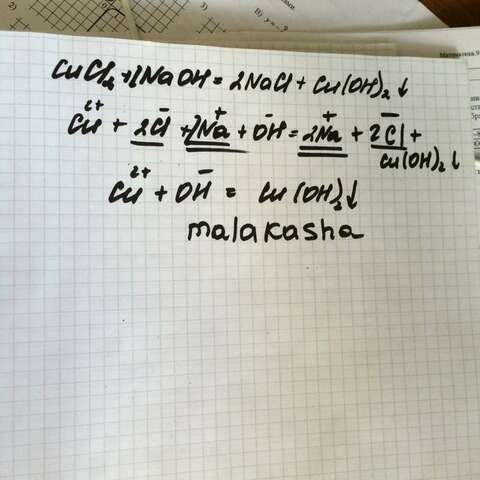 2)
Н) y =
Математика 9
CuCl₂ + 2NaOH = 2NaCl + Cu(OH)₂↓
Cu²⁺ + 2Cl⁻ + 2Na⁺ + OH⁻ = 2Na⁺ + 2Cl⁻ +
Cu(OH)₂↓
Cu²⁺ + OH⁻ = Cu(OH)₂↓
malakasha